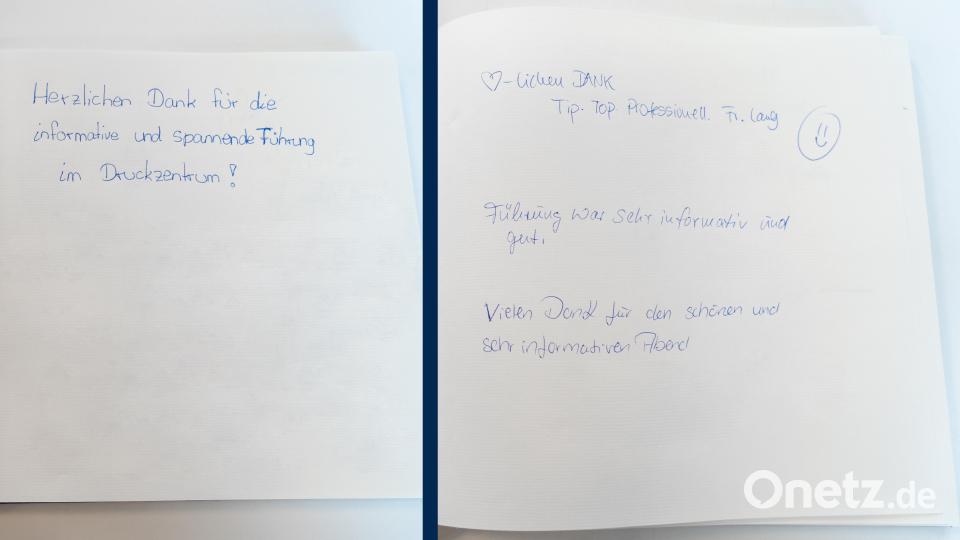 Herzlichen Dank für die
informative und spannende Führung
im Druckzentrum!
♡-lichen DANK
Tip. Top. Professionell. Fr. Lang
Führung war sehr informativ und
gut.
Vielen Dank für den schönen und
sehr informativen Abend
Onetz.de